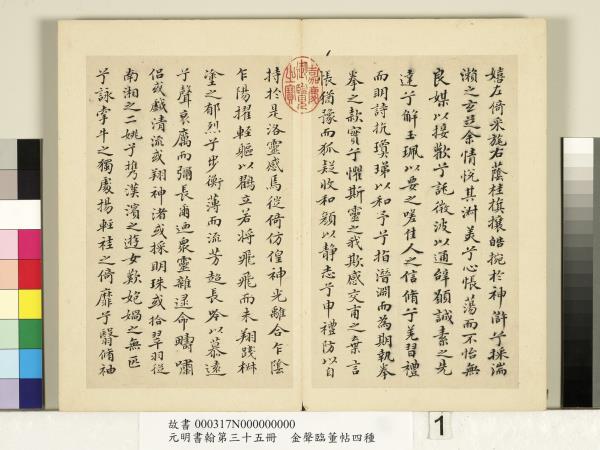 嬉左倚采旄右蔭桂旗攘皓捥於神滸兮採湍
瀨之玄芝余情悅其淑美兮心悵蕩而不怡無
良媒以接歡兮託微波以通辭願誠素之先
達兮解玉珮以要之嗟佳人之信脩兮羌習禮
而明詩抗瓊珶以和予兮指潛淵而為期執拳
拳之款實兮懼斯靈之我欺感交甫之棄言
悵猶豫而狐疑收和顏以靜志兮申禮防以自
嘉慶御覽之寶
持於是洛靈感焉徙倚仿偟神光離合乍陰
乍陽擢輕軀以鸖立若將飛飛而未翔踐椒
塗之郁烈兮步衡薄而流芳超長吟以慕遠
兮聲哀厲而彌長爾迺衆靈雜遝命疇嘯
侶或戲清流或翔神渚或採明珠或拾翠羽從
南湘之二姚兮携漢濱之遊女歎匏媧之無匹
兮詠牽牛之獨處揚輕袿之倚靡兮翳脩袖
故書 000317N000000000
元明書翰第三十五冊 金聲臨董帖四種
1